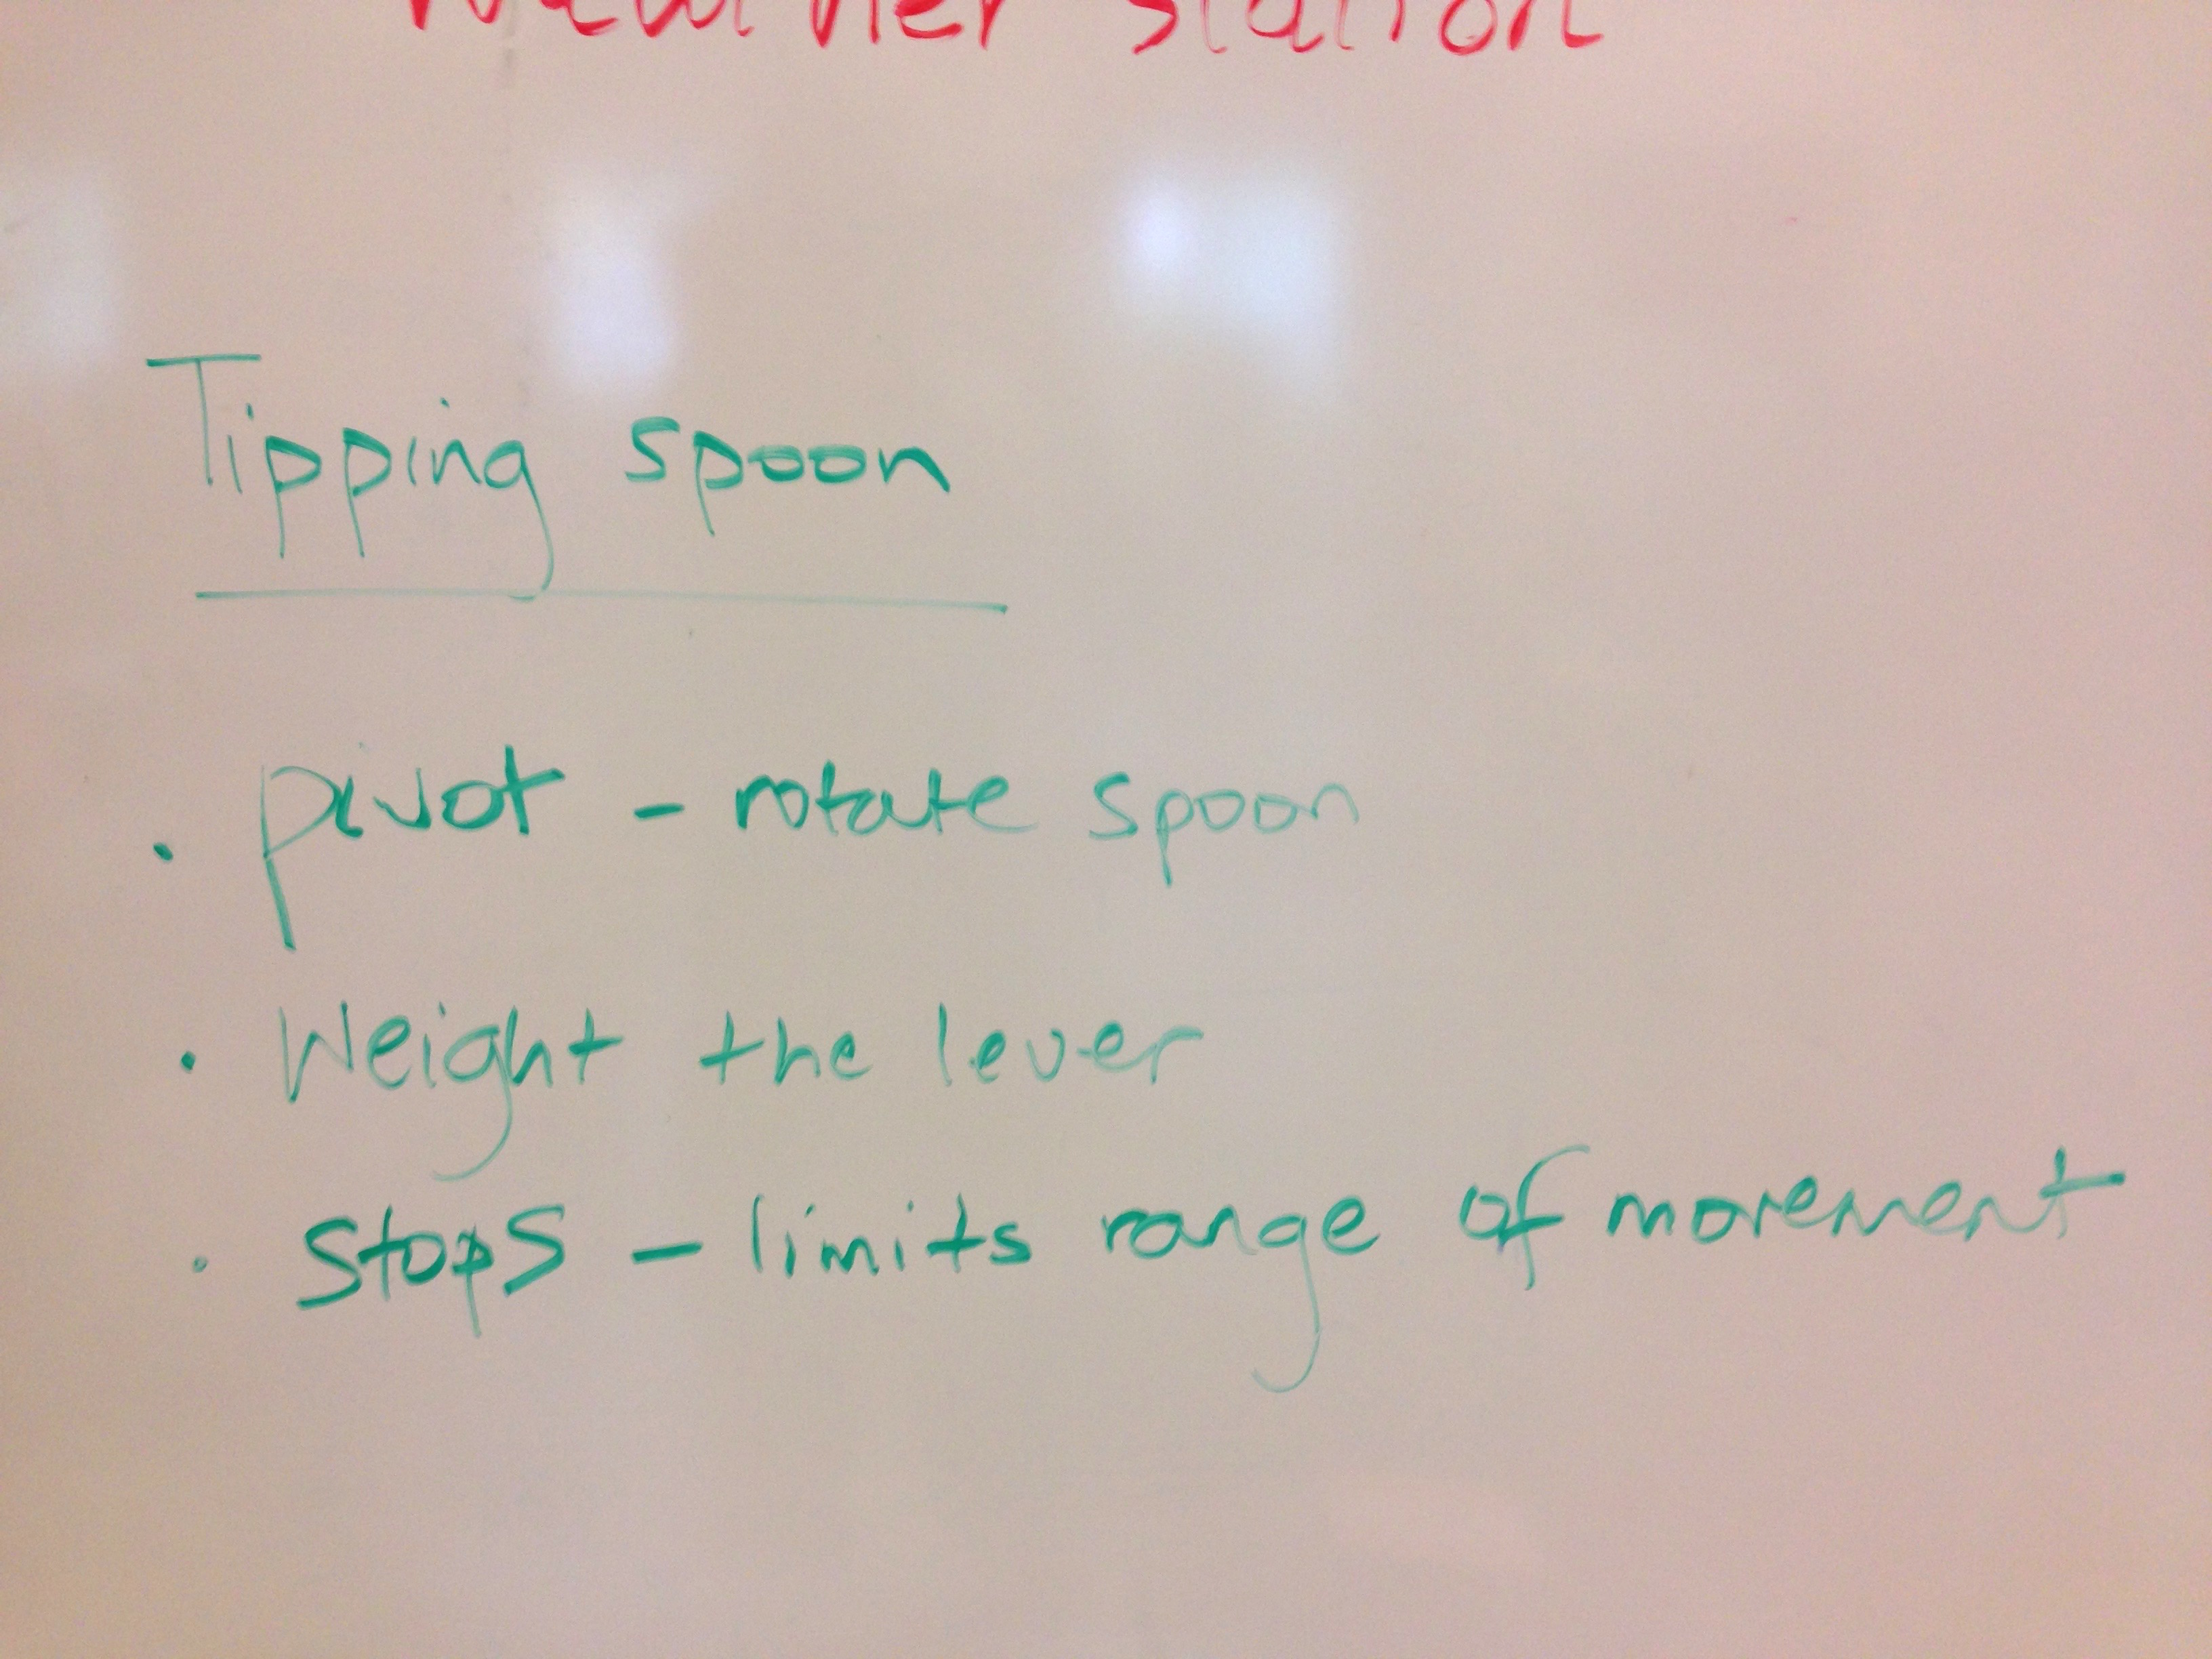 Weather station
Tipping spoon
• pivot - rotate spoon
• Weight the lever
• Stops - limits range of movement